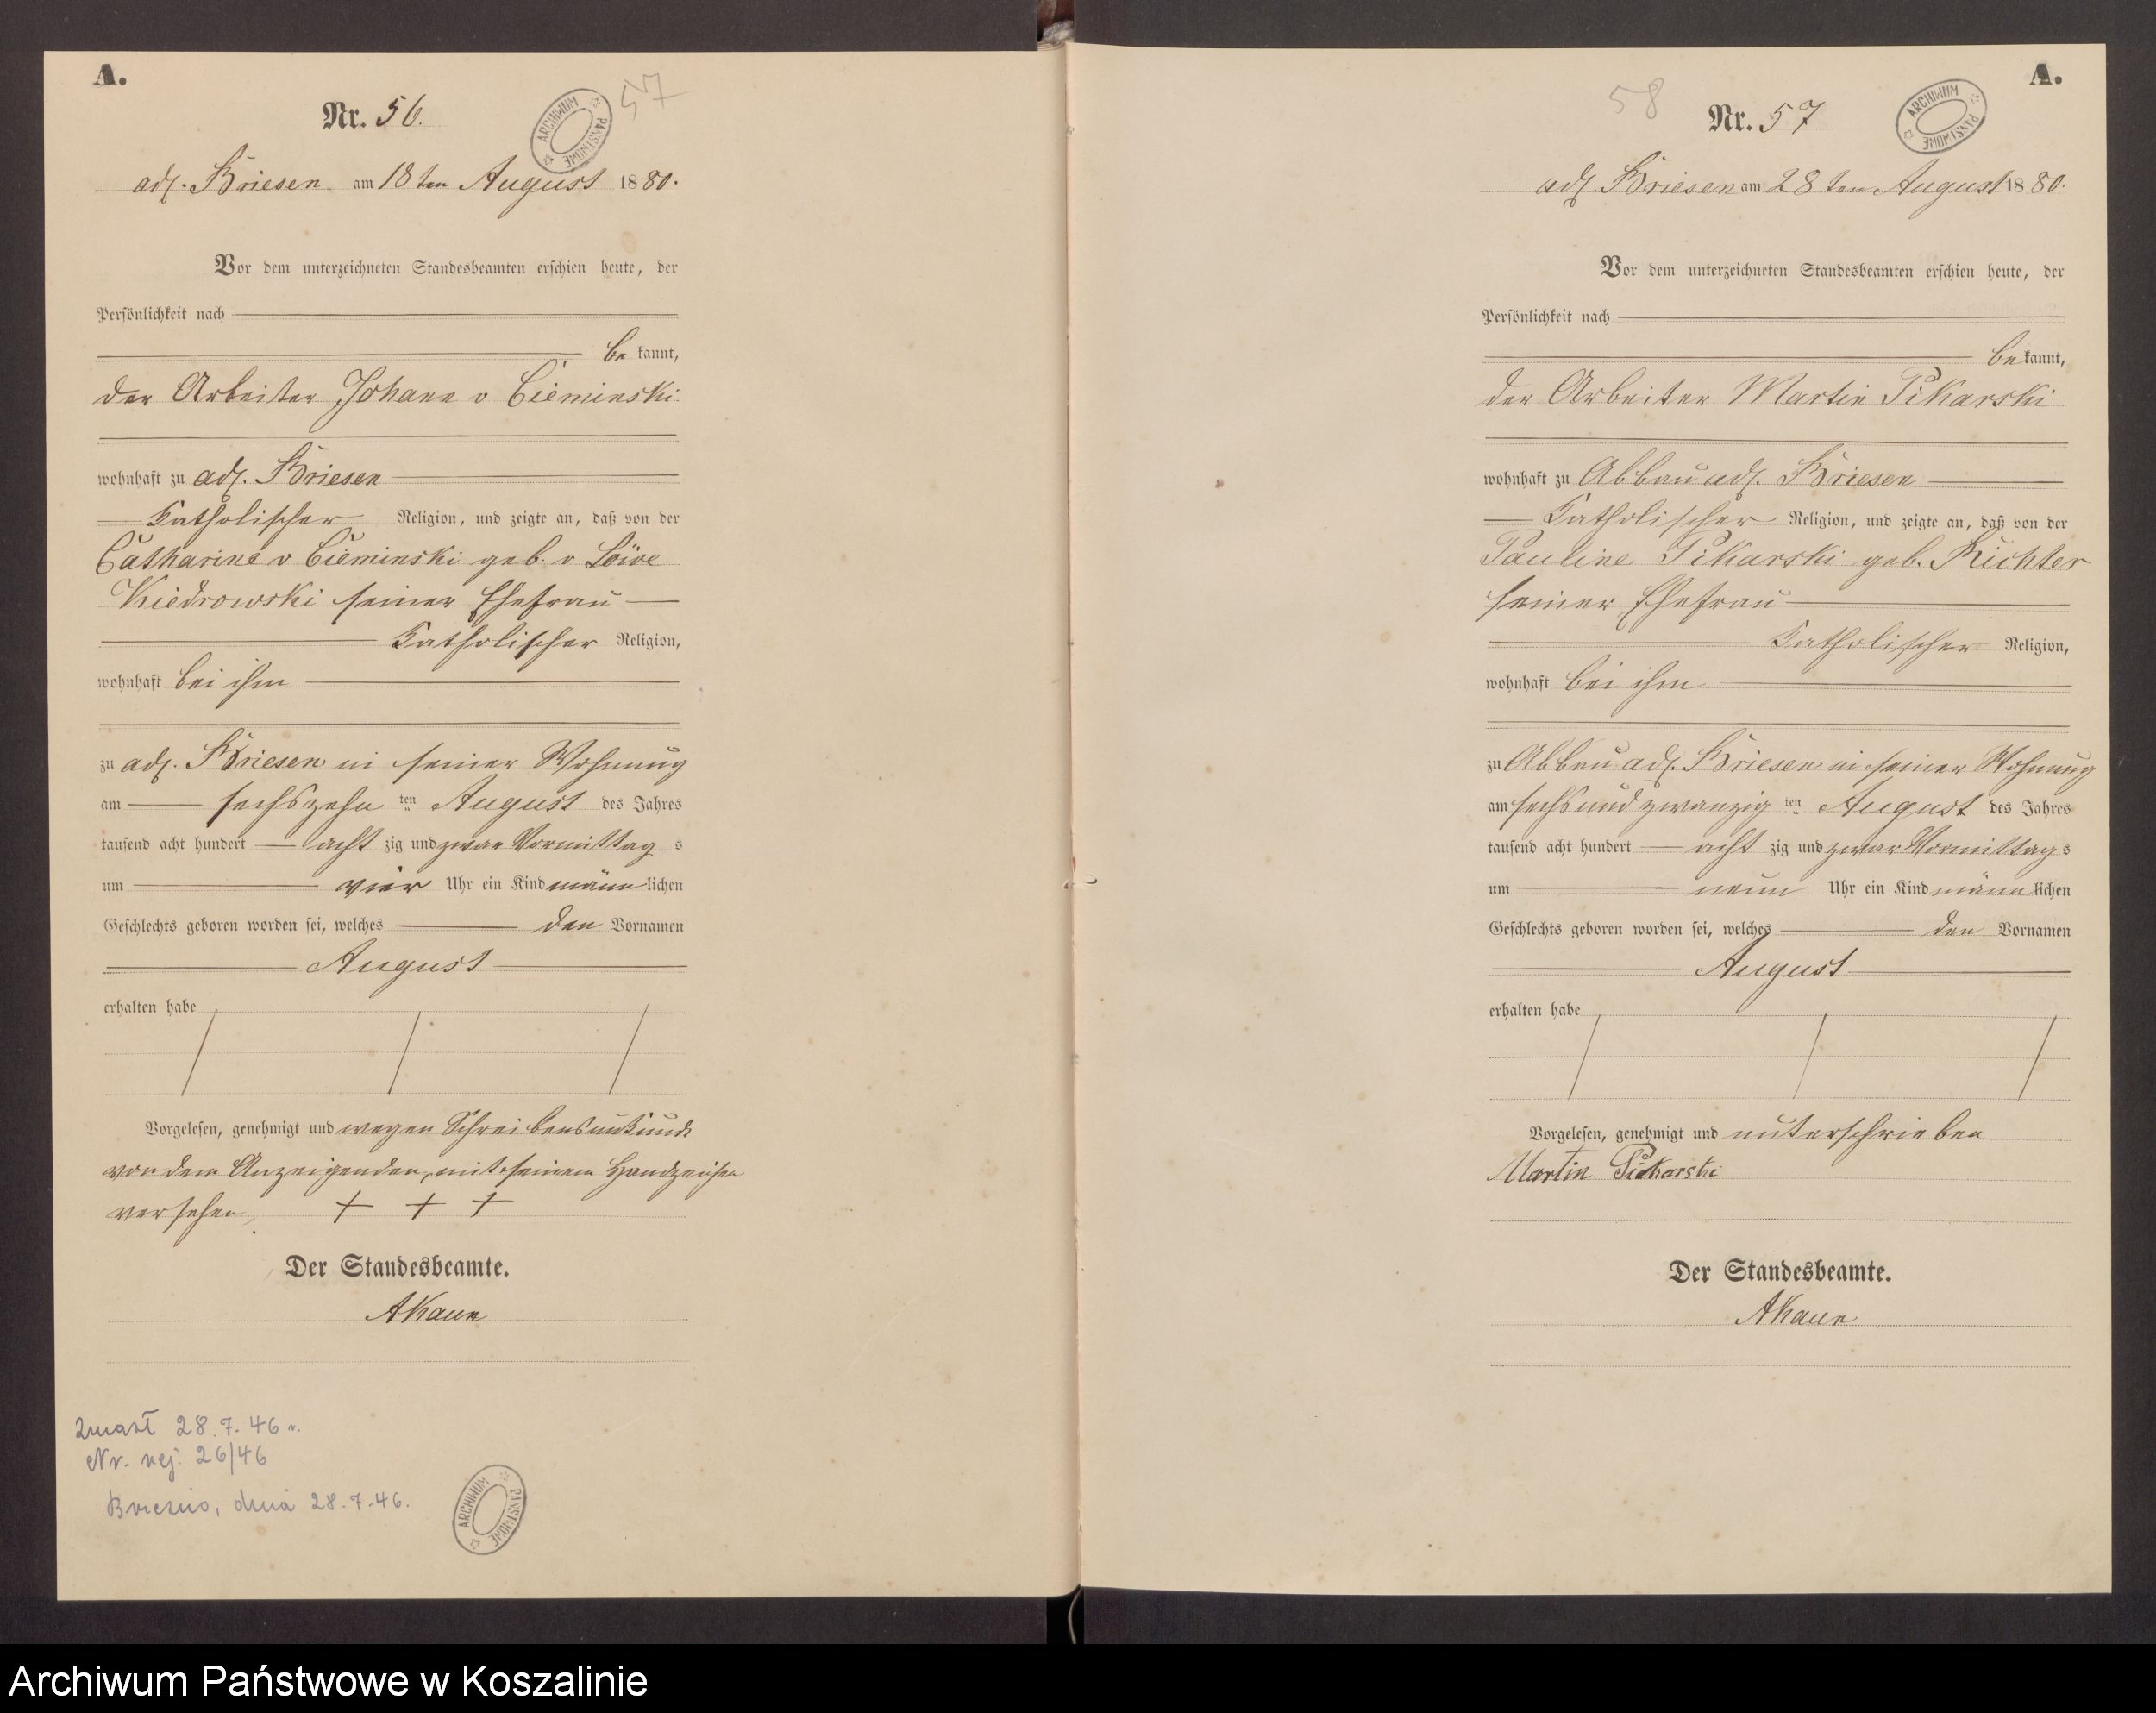 A.
Nr. 56.
57
ARCHIWUM PAŃSTWOWE
adl. Briesen am 18ten August 1880.
Vor dem unterzeichneten Standesbeamten erschien heute, der
Persönlichkeit nach
be kannt,
der Arbeiter Johann v Cieminski
wohnhaft zu adl. Briesen
Katholischer Religion, und zeigte an, daß von der
Catharina v Cieminski geb. v
Kiedrowski seiner Ehefrau
Katholischer Religion,
wohnhaft bei ihm
zu adl. Briesen in seiner Wohnung
am sechszehn ten August des Jahres
tausend acht hundert acht zig und zwar Vormittag s
um vier Uhr ein Kind männ lichen
Geschlechts geboren worden sei, welches den Vornamen
August
erhalten habe
Vorgelesen, genehmigt und wegen Schreibensunkunde
von dem Anzeigenden, mit seinem Handzeichen
versehen, + + +
Der Standesbeamte.
AKaun
Zmarł 28.7.46 r.
Nr. rej. 26/46
Brzeźno, dnia 28.7.46.
ARCHIWUM PAŃSTWOWE
A.
58
Nr. 57
ARCHIWUM PAŃSTWOWE
adl. Briesen am 28ten August 1880.
Vor dem unterzeichneten Standesbeamten erschien heute, der
Persönlichkeit nach
be kannt,
der Arbeiter Martin Pikarski
wohnhaft zu Abbau adl. Briesen
Katholischer Religion, und zeigte an, daß von der
Pauline Pikarski geb. Richter
seiner Ehefrau
Katholischer Religion,
wohnhaft bei ihm
zu Abbau adl. Briesen in seiner Wohnung
am sechsundzwanzig ten August des Jahres
tausend acht hundert acht zig und zwar Vormittag s
um neun Uhr ein Kind männ lichen
Geschlechts geboren worden sei, welches den Vornamen
August
erhalten habe
Vorgelesen, genehmigt und unterschrieben
Martin Piekarski
Der Standesbeamte.
AKaun
Archiwum Państwowe w Koszalinie